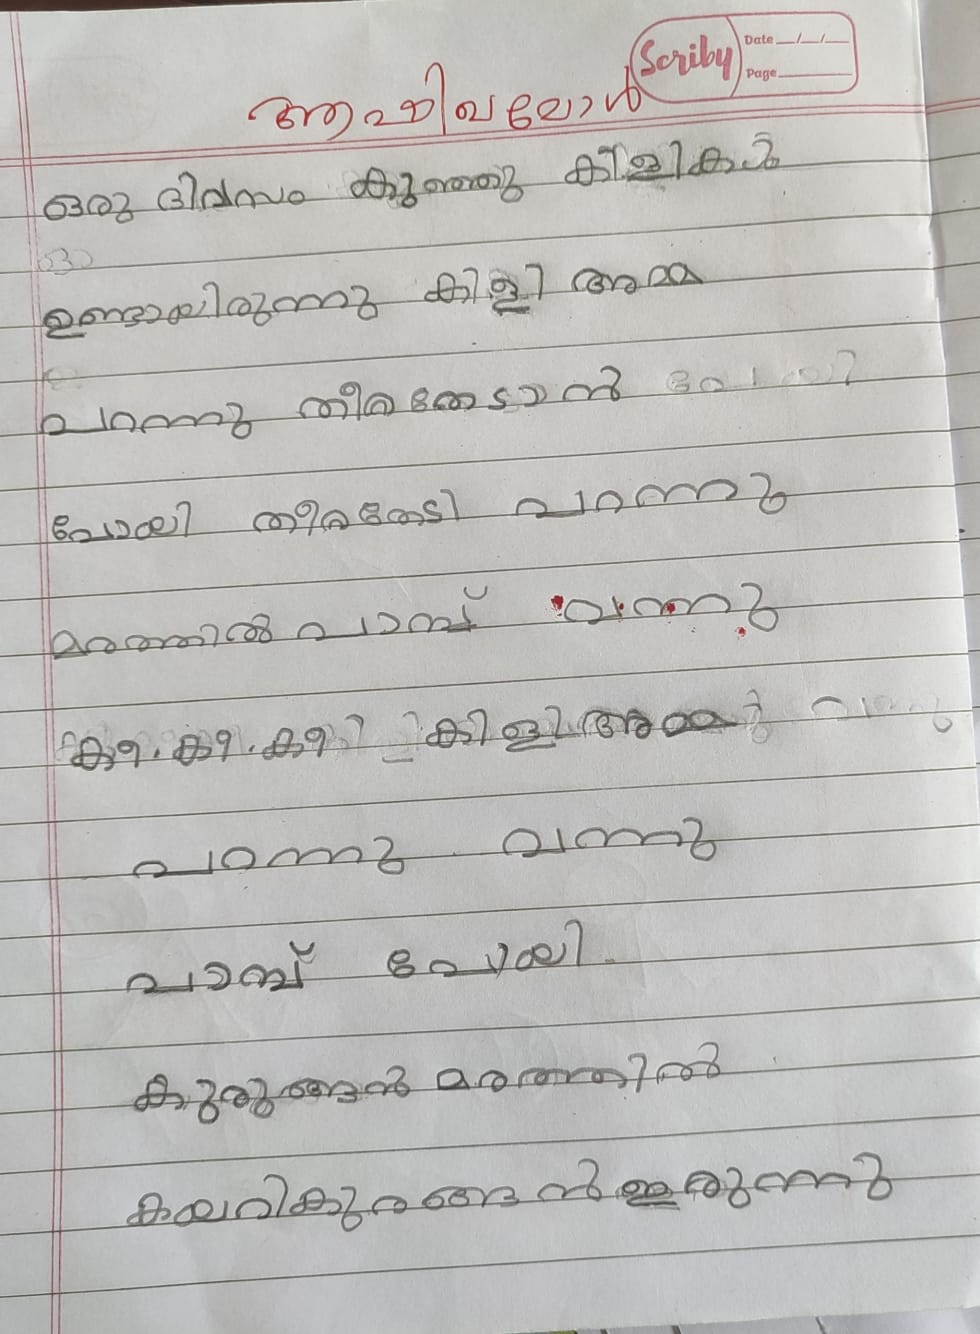 Scriby Date __/__/__
Page ______
ഒരു ദിവസം കുഞ്ഞു കിളികൾ
ഉണ്ടായിരുന്നു കിളി അമ്മ
പറന്നു തീറ്റതേടാൻ
പോയി തീറ്റതേടി പറന്നു
മരത്തിൽ പാമ്പ് വന്നു
കീ. കീ. കീ കിളി അമ്മ
പറന്നു വന്നു
പാമ്പ് പോയി.
കുരുങ്ങൻ മരത്തിൽ
കയറി കുരങ്ങൻ ഇരുന്നു